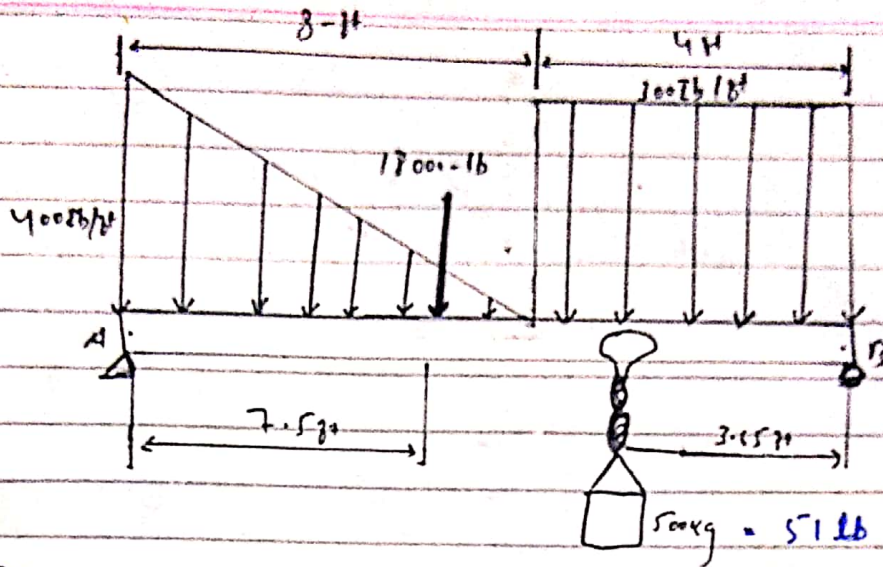 8-ft
4 ft
300 lb/ft
1800-lb
400 lb/ft
A
B
7.5 ft
500 kg = 51 lb